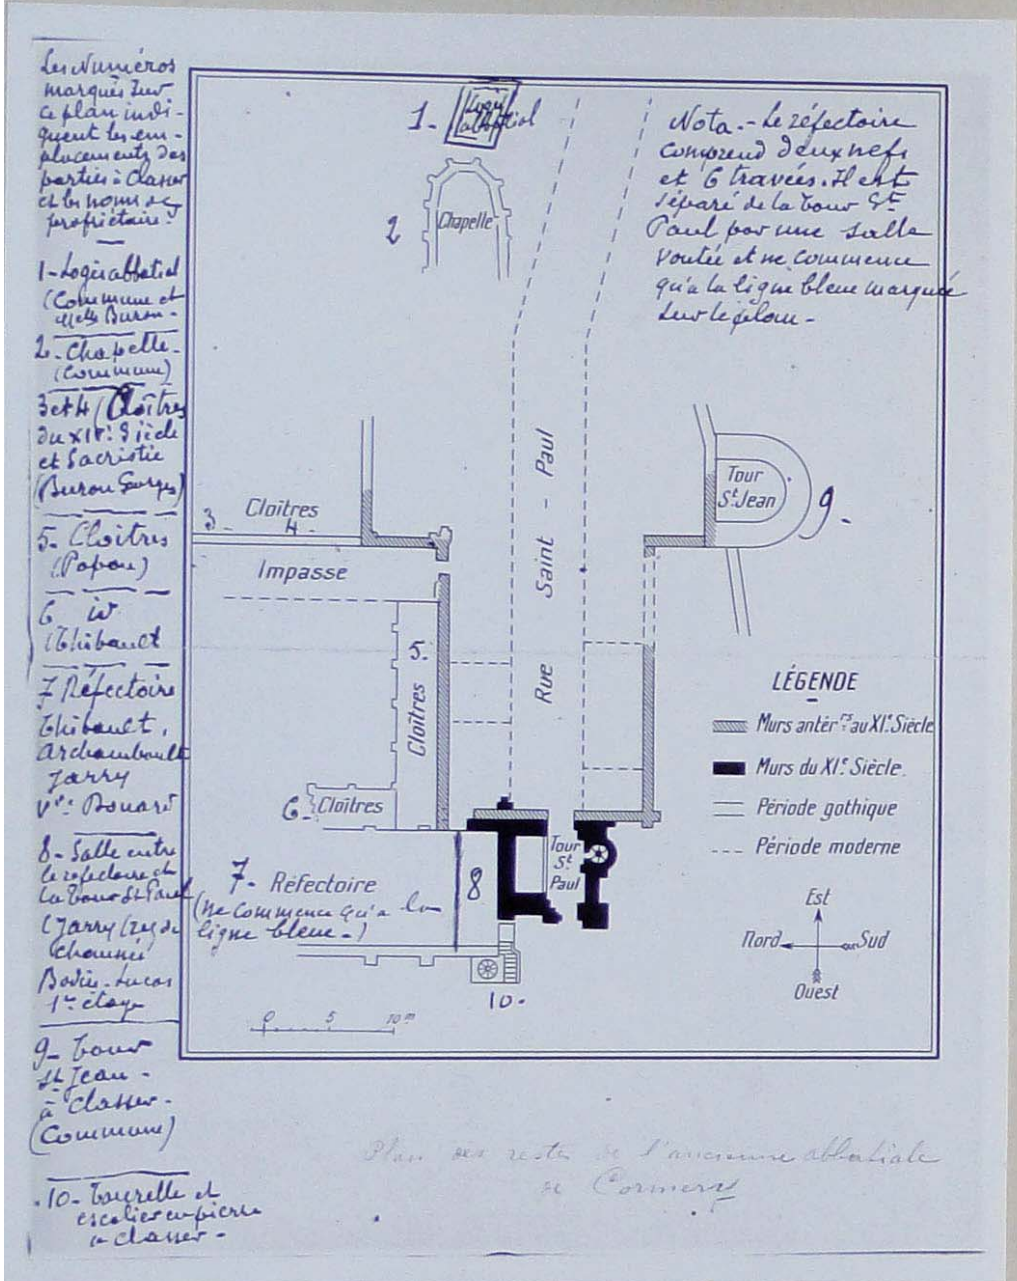 Les Numéros
marqués sur
ce plan indi-
quent les em-
placements des
parties à classer
et les noms des
propriétaires.
1 - Logis abbatial
(Commune et
Melle Buron -
2 - Chapelle -
(Commune)
3 et 4 (Cloîtres
du XIVe Siècle
et Sacristie
(Buron Georges)
5 - Cloîtres
(Papou)
6 id
(Thibault
7 Réfectoire
Thibault,
Archambault
Jarry
Vve Bouard
8 - Salle entre
le réfectoire et
la tour St Paul
(Jarry (rez de
chaussée)
Bodin-Lucas
1er étage
9 - Tour
St Jean -
à classer -
(Commune)
10 - Tourelle et
escalier en pierre
à classer -
1 - Logis
abbatial
2 Chapelle
Nota. - Le réfectoire
comprend deux nefs
et 6 travées. Il est
séparé de la tour St
Paul par une salle
voutée et ne commence
qu'à la ligne bleue marquée
sur le plan -
Tour
St Jean
9 -
Rue Saint - Paul
3 - Cloîtres
4 -
Impasse
5.
Cloîtres
6 - Cloîtres
7 - Réfectoire
(ne commence qu'à la
ligne bleue -)
8
Tour
St
Paul
10 -
0 5 10 m
LÉGENDE
Murs antérrs au XIe Siècle
Murs du XIe Siècle.
Période gothique
Période moderne
Est
Nord Sud
Ouest
Plan des restes de l'ancienne abbatiale
de Cormery